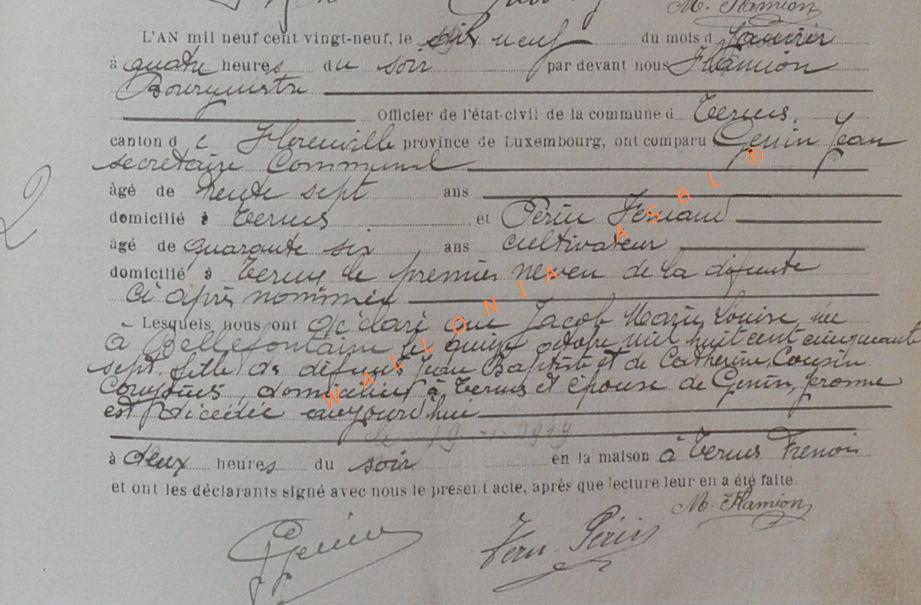 M. Hamion
L'AN mil neuf cent vingt-neuf, le dix neuf du mois d Janvier
à quatre heures du soir par devant nous Hamion
Bourgmestre
Officier de l'état-civil de la commune d Termes.
canton d e Florenville province de Luxembourg, ont comparu Genin Jean
secrétaire Communal
âgé de trente sept ans
domicilié à Termes et Périn Fernand
âgé de quarante six ans cultivateur
domicilié à Termes le premier neveu de la défunte
ci après nommée
Lesquels nous ont déclaré que Jacob Marie Louise née
à Bellefontaine le quinze octobre mil huit cent cinquante
sept fille des défunts Jean Baptiste et de Catherine Cousin
domiciliée à Termes et épouse de Genin, Jerome
est décédée aujourd'hue
le 19-1-1929
à deux heures du soir en la maison à Termes Frenois
et ont les déclarants signé avec nous le présent acte, après que lecture leur en a été faite.
M. Hamion
Genin
Fern. Périn
2
WALLONIA ASBL ®